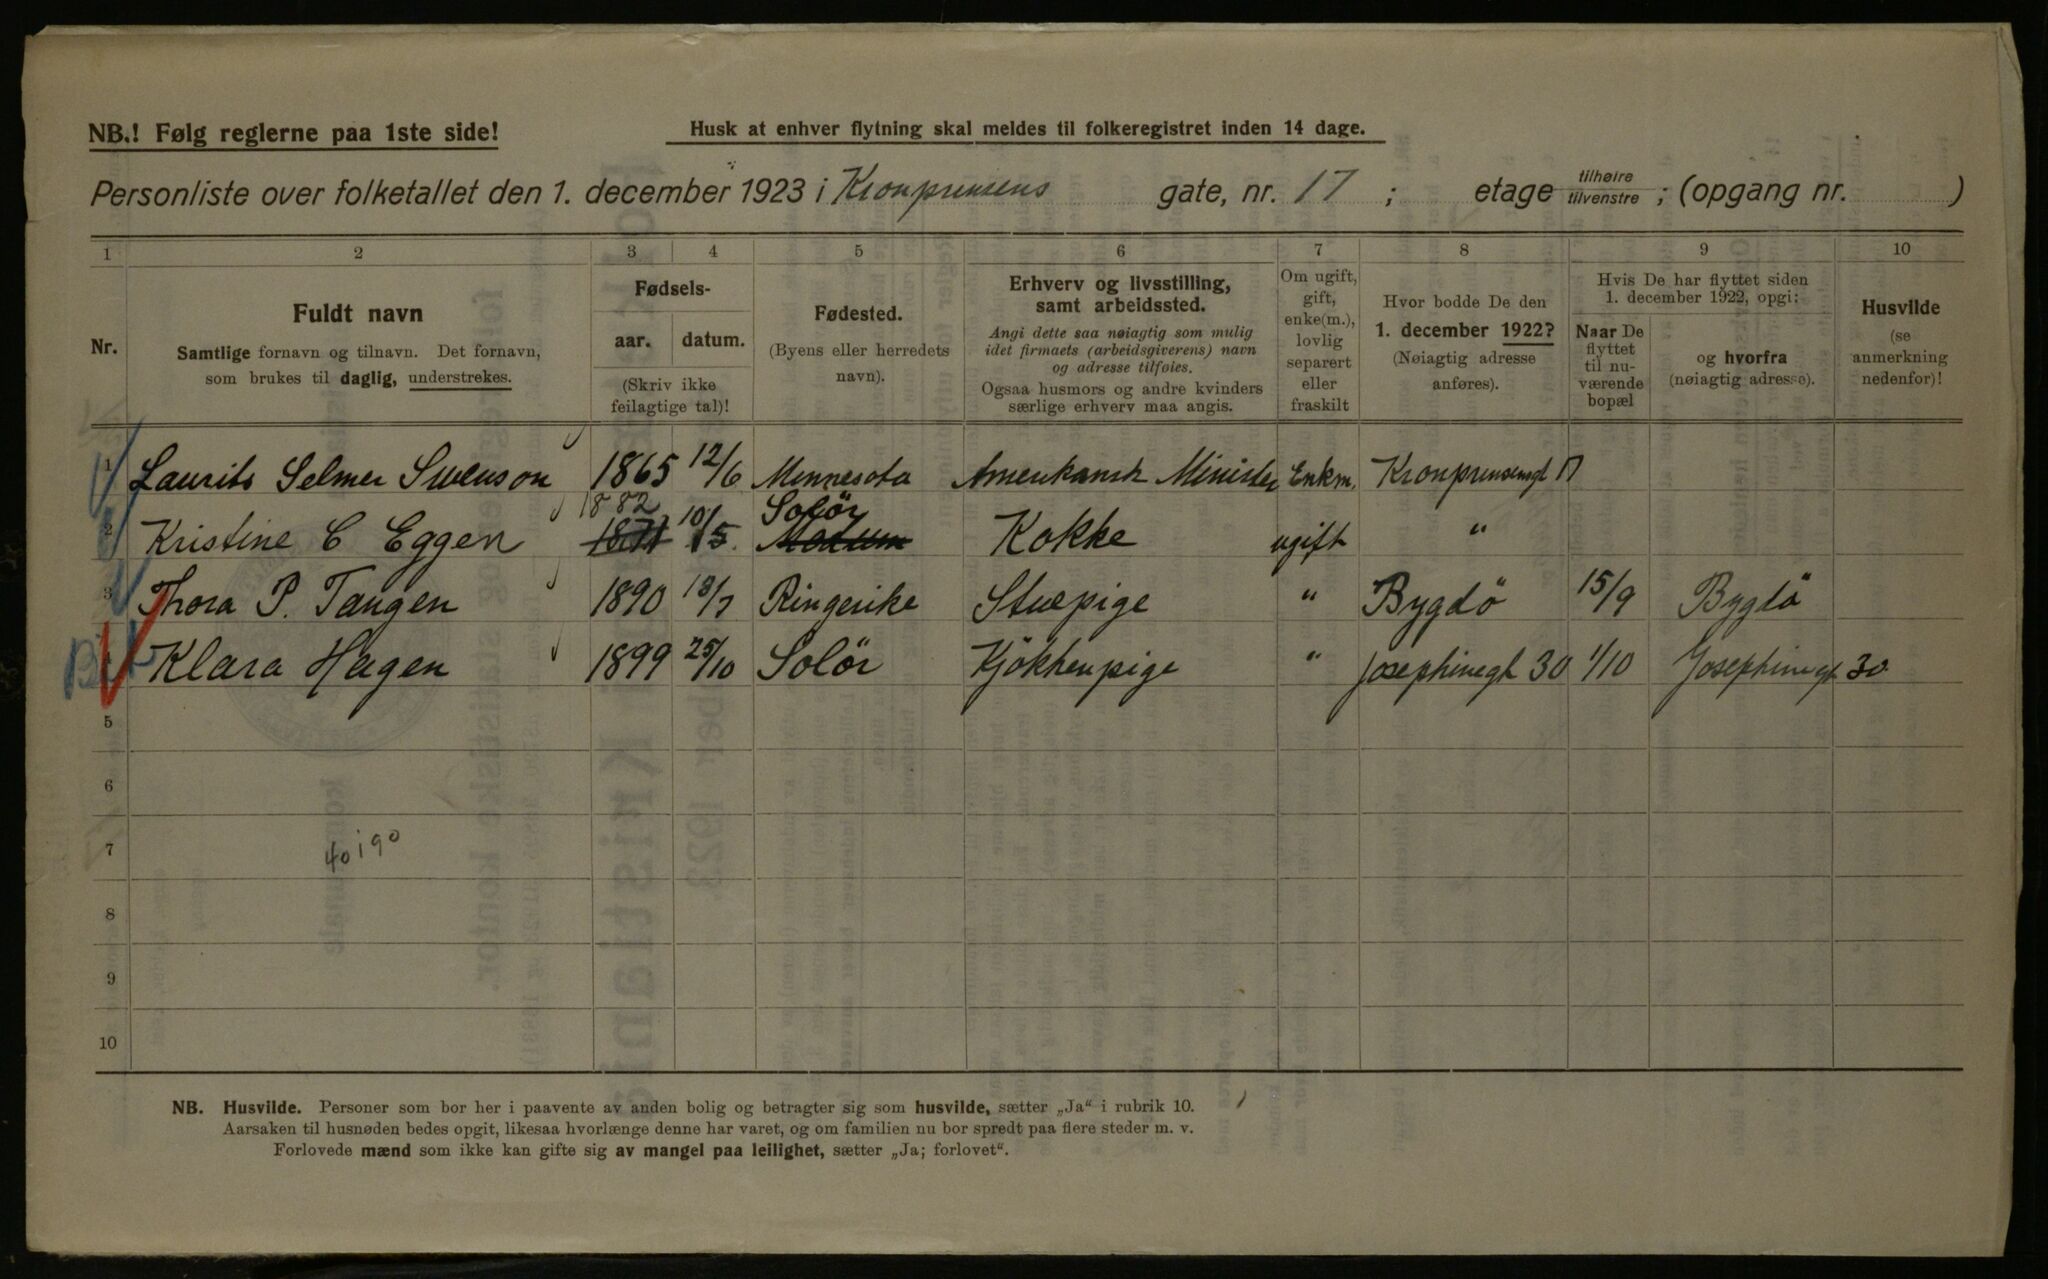 NB.! Følg reglerne paa 1ste side!
Husk at enhver flytning skal meldes til folkeregistret inden 14 dage.
Personliste over folketallet den 1. december 1923 i Kronprinsens gate, nr. 17 ; etage tilhøire tilvenstre ; (opgang nr. )
1 2 3 4 5 6 7 8 9 10
Nr.
Fuldt navn
Samtlige fornavn og tilnavn. Det fornavn,
som brukes til daglig, understrekes.
Fødsels-
aar. datum.
(Skriv ikke
feilagtige tal)!
Fødested.
(Byens eller herredets
navn).
Erhverv og livsstilling,
samt arbeidssted.
Angi dette saa nøiagtig som mulig
idet firmaets (arbeidsgiverens) navn
og adresse tilføies.
Ogsaa husmors og andre kvinders
særlige erhverv maa angis.
Om ugift,
gift,
enke(m.),
lovlig
separert
eller
fraskilt
Hvor bodde De den
1. december 1922?
(Nøiagtig adresse
anføres).
Hvis De har flyttet siden
1. december 1922, opgi:
Naar De
flyttet
til nu-
værende
bopæl
og hvorfra
(nøiagtig adresse).
Husvilde
(se
anmerkning
nedenfor)!
1 Laurits Selmer Swenson 1865 12/6 Minnesota Amerikansk Minister Enkm. Kronprinsensgt 17
1882 Solör
2 Kristine C Eggen 1871 10/5 Modum Kokke ugift "
3 Thora P. Tangen 1890 18/7 Ringerike Stuepige " Bygdö 15/9 Bygdö
4 Klara Hagen 1899 25/10 Solör Kjökkenpige " Josephinegt 30 1/10 Josephinegt 30
5
6
7 40190
8
9
10
NB. Husvilde. Personer som bor her i paavente av anden bolig og betragter sig som husvilde, sætter „Ja“ i rubrik 10.
Aarsaken til husnøden bedes opgit, likesaa hvorlænge denne har varet, og om familien nu bor spredt paa flere steder m. v.
Forlovede mænd som ikke kan gifte sig av mangel paa leilighet, sætter „Ja; forlovet“.